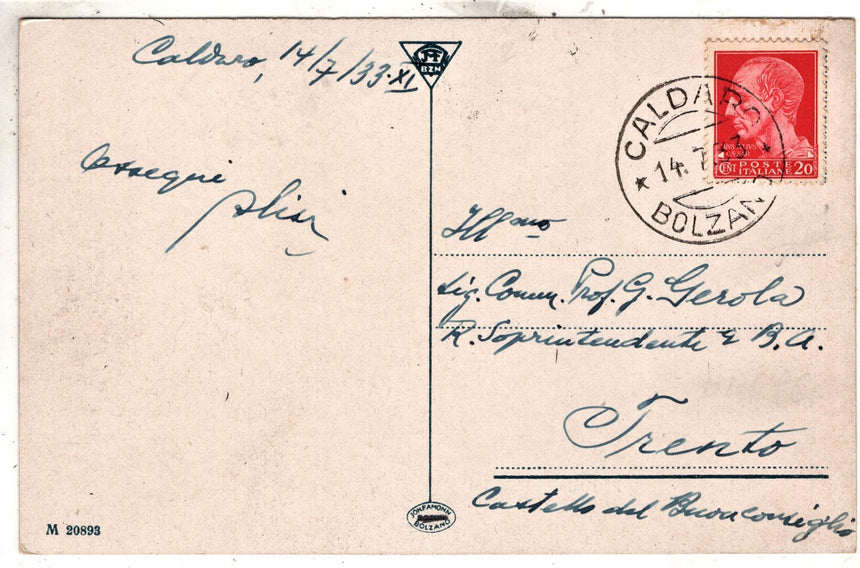 Caldaro, 14/7/33-XI
BZN
CALDARO
14.7.33
BOLZANO
IVLIVS
CAESAR
CENT POSTE ITALIANE 20
Ossequi
Ill.mo
Sig. Comm. Prof. G. Gerola
R. Soprintendente B. A.
Trento
Castello del Buonconsiglio
M 20893
BOLZANO